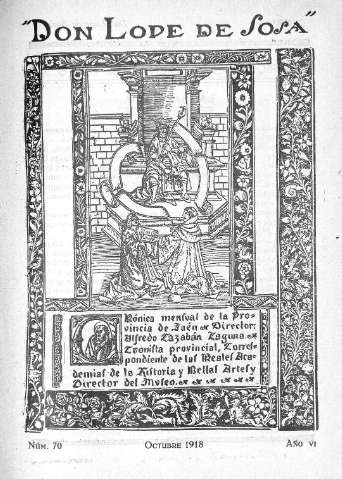 "DON LOPE DE SOSA"
Crónica mensual de la Pro-
vincia de Jaén Director:
Alfredo Cazabán Laguna
Cronista provincial, Corres-
pondiente de las Reales Aca-
demias de la Historia y Bellas Artes y
Director del Museo.
NÚM. 70 OCTUBRE 1918 AÑO VI